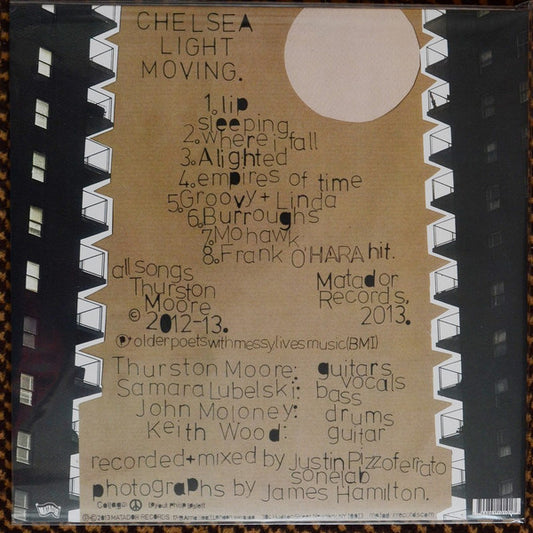 CHELSEA
LIGHT
MOVING.
1. lip
2. sleeping where i fall
3. Alighted
4. empires of time
5. Groovy + Linda
6. Burroughs
7. Mohawk
8. Frank O'HARA hit.
all songs
Thurston
Moore
© 2012-13.
Matador
Records,
2013.
Ⓟ older poets with messy lives music (BMI)
Thurston Moore: guitars vocals
Samara Lubelski: bass
John Moloney: drums
Keith Wood: guitar
recorded + mixed by Justin Pizzoferrato
sonelab
photographs by James Hamilton.
Collage:
Ⓟ © 2013 MATADOR RECORDS